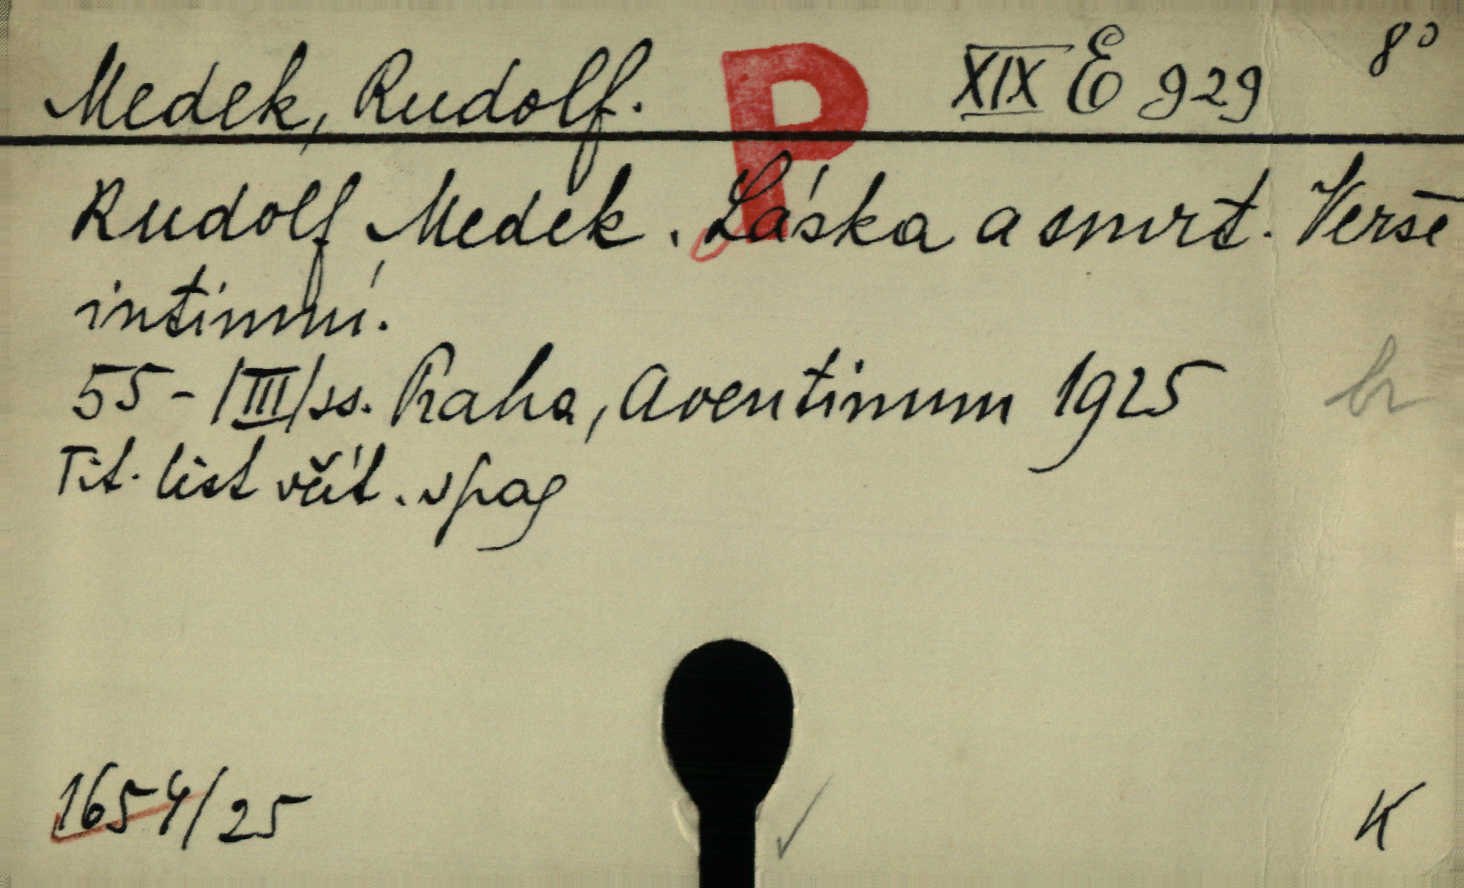 Medek, Rudolf. P XIX E 929 8°
Rudolf Medek. Láska a smrt. Verše
intimní.
55-/III/ss. Praha, Aventinum 1925 br
Tit. list včít. v pag
1654/25 K